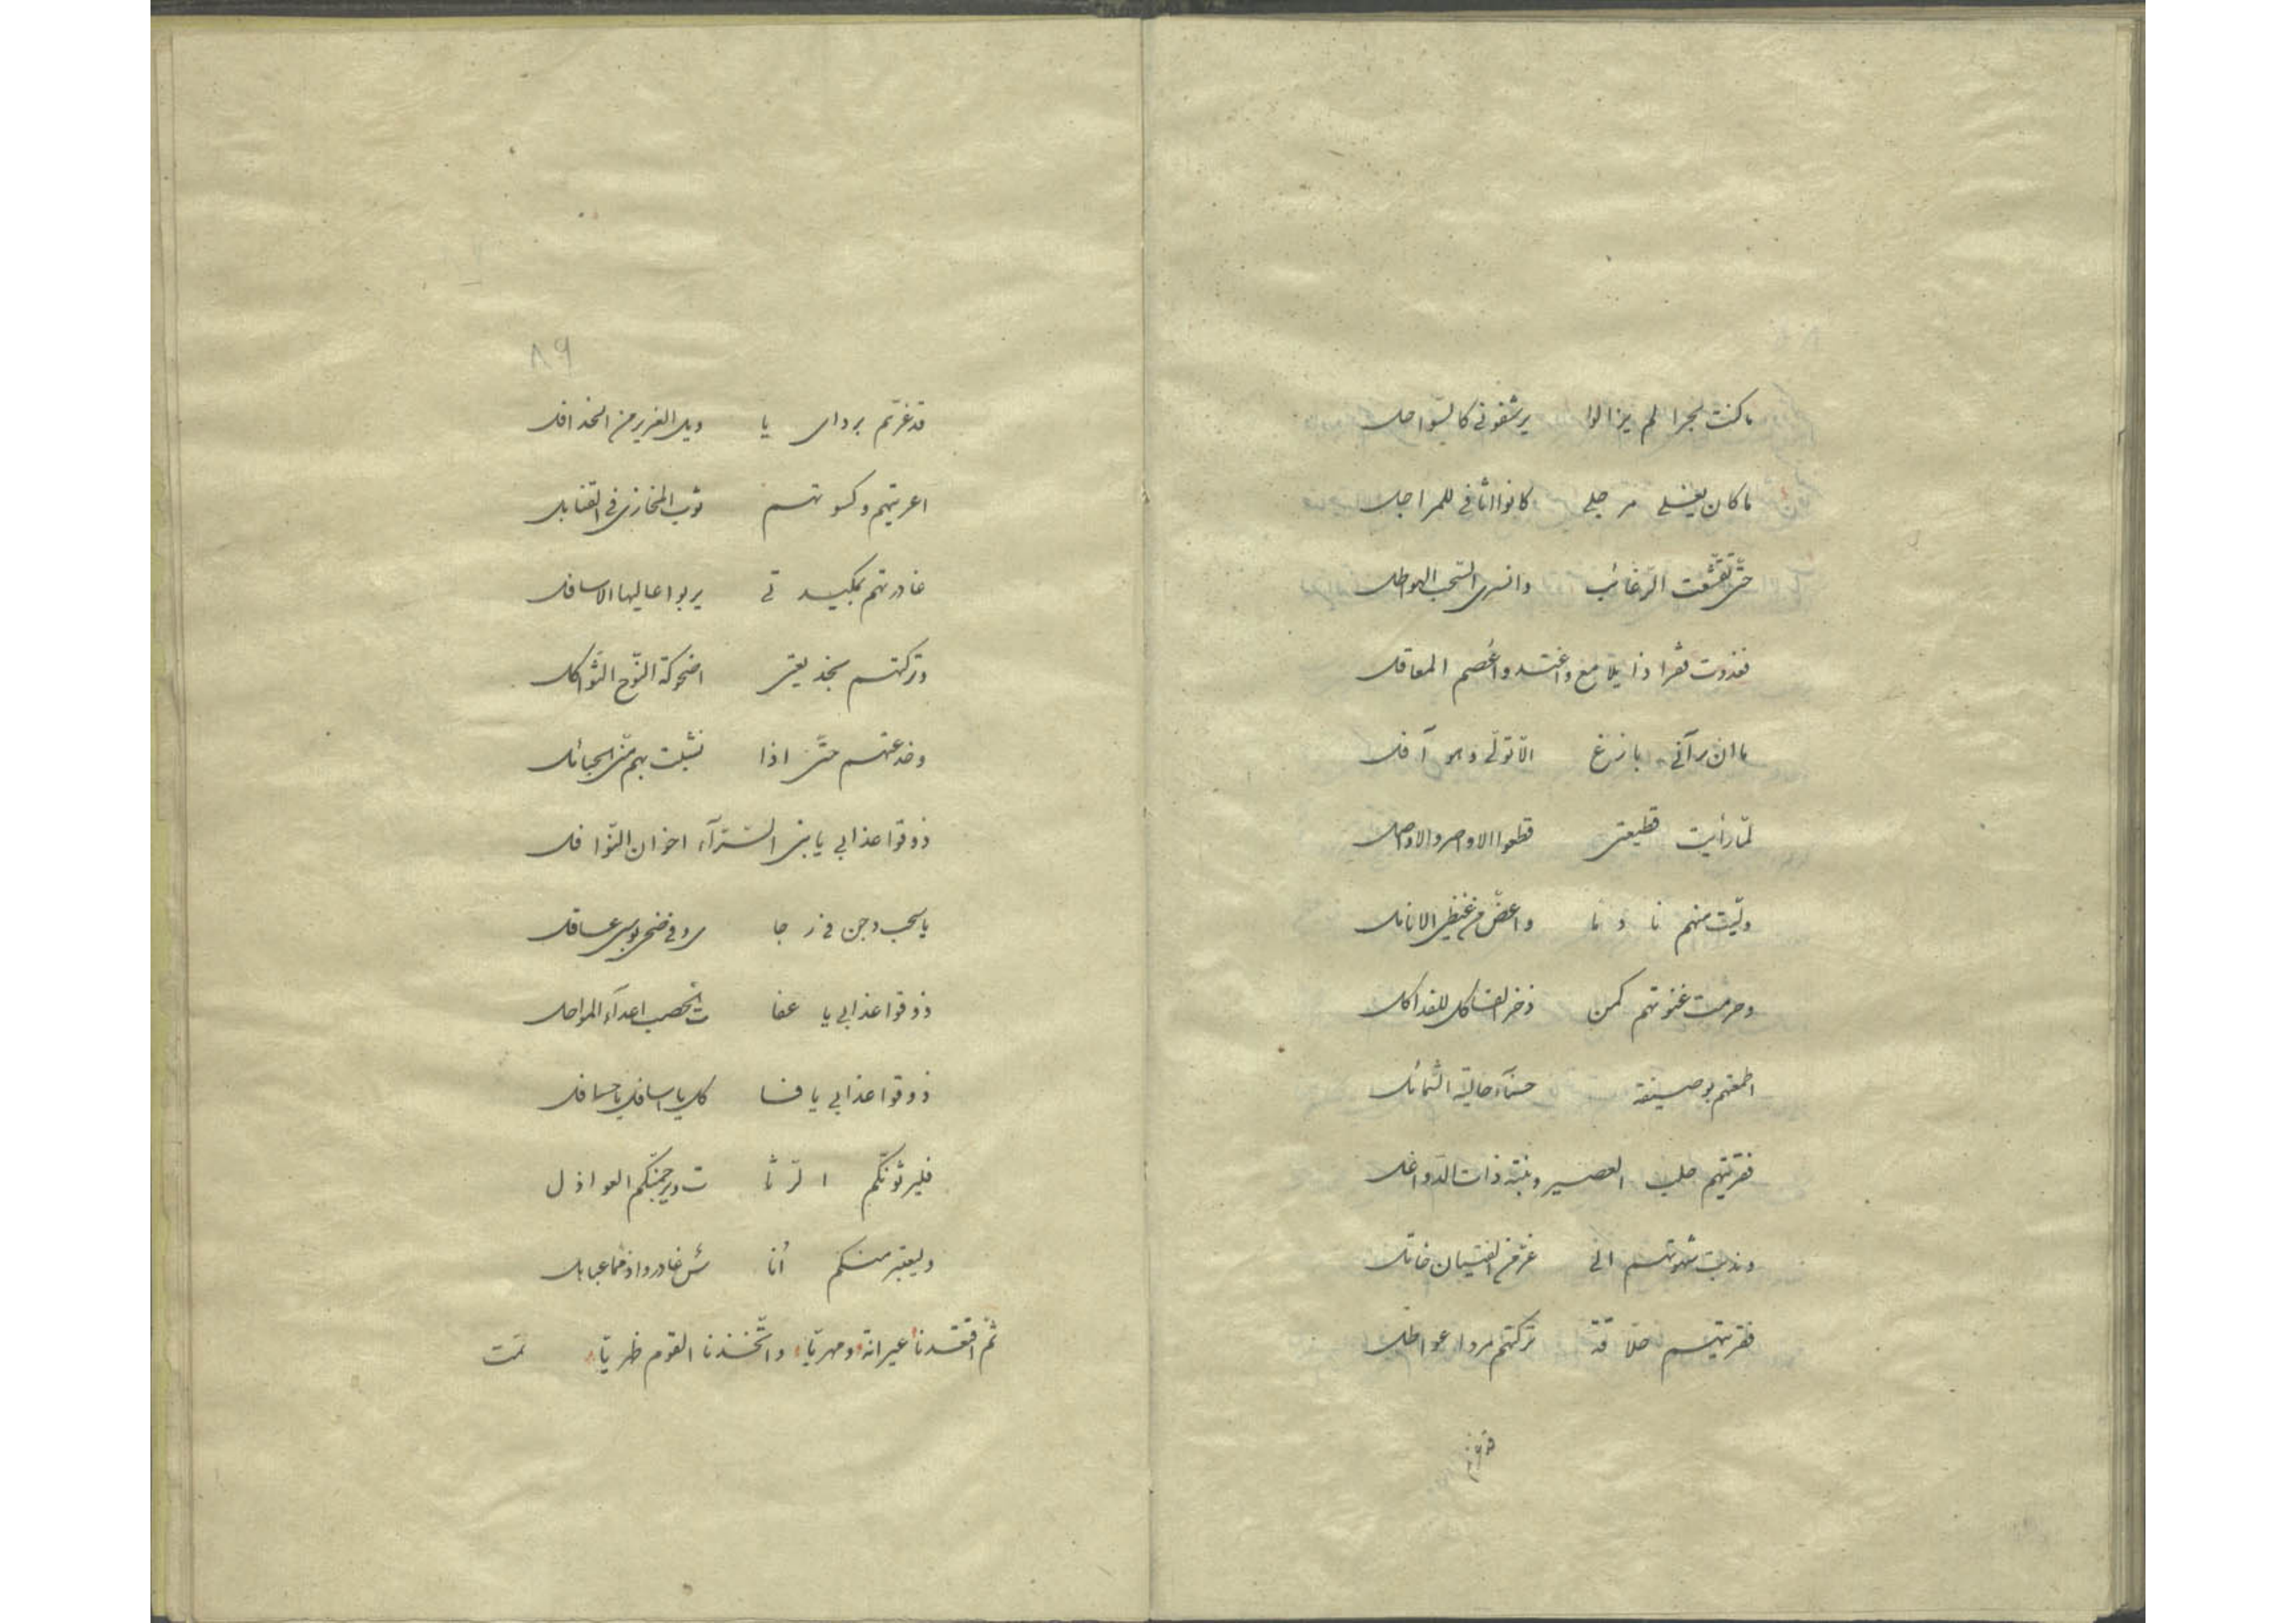 ما كنت بحرا لم يزالوا يرشفوني كالسّواحل
ما كان يغلي مرجلي كانوا اثافي للمراجل
حتّى تقشّعت الرغائب وانسرى السّحب الهواطل
فغدوت قفرا ذا يلامع واغتدوا عُصم المعاقل
ما ان رآني بازغ الّا تولّى وهو آفل
لمّا رأيت قطيعتي قطعوا الاواصر والاواصل
ولّيت منهم نادما واعضّ من غيظي الانامل
وحرمت غنوتهم كمن ذخر
اطمعتهم بوصيفة حسنآء حالية الشمائل
فقريتهم حلب العصير وبنته ذات الدّواغل
وندبت شهوتهم الى غرّ من الفتيان خاتل
فقريتهم حلّاقة تركتهم مردا عواطل
قد غرّتم
٨٩
قد غرّتم بردای يا ويل الغرير من الخدافل
اعريتهم وكسوتهم ثوب المخازى فى القنابل
غادرتهم بمكيدتي يربوا عاليها الاسافل
وتركتهم بخديعتى اضحوكة النّوح الثّواكل
وخدعتهم حتّى اذا نشبت بهم منّى الحبائل
ذوقوا عذابي يا بنى السّرّآء اخوان النّوافل
يا سحب دجن في رجا
ذوقوا عذابي يا عفا ة الخصب اعدآء المواحل
ذوقوا عذابي يا فسا كل يا اسافل يا حسافل
فليرثونّكم الرّثا ة ويرحمنّكم العواذل
وليعتبر منكم أنا س غادروا ذمما عباهل
ثمّ افتقدنا عيرانة ومهريّا واتّخذنا القوم ظهريّا تمت